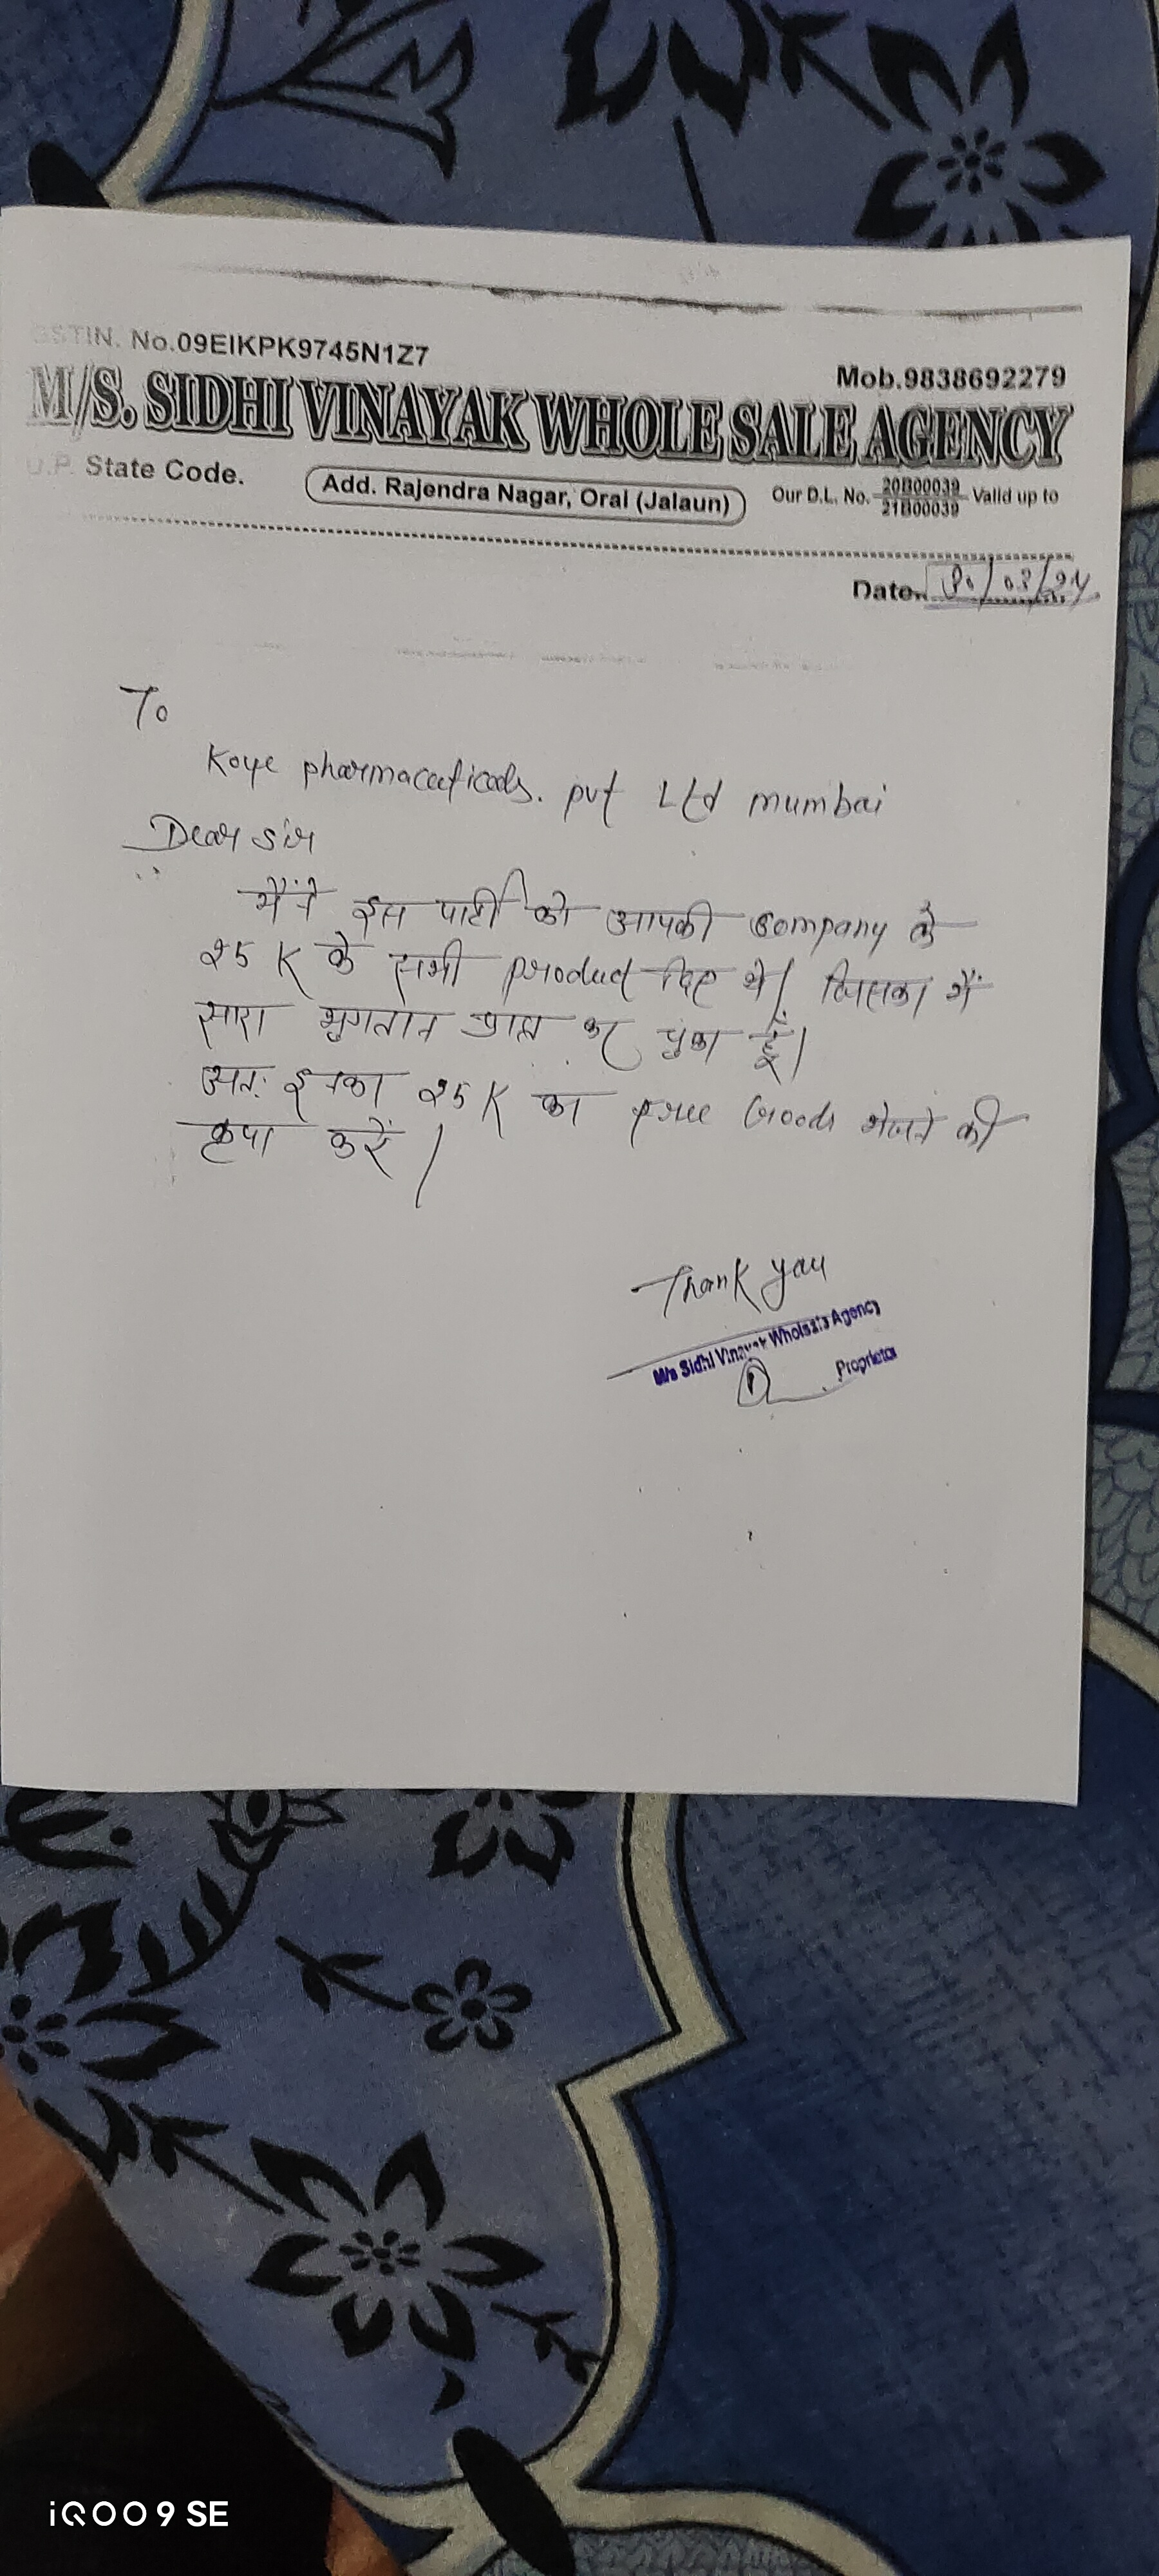 GSTIN. No.09EIKPK9745N1Z7
Mob.9838692279
M/S. SIDHI VINAYAK WHOLE SALE AGENCY
U.P. State Code.
Add. Rajendra Nagar, Orai (Jalaun)
Our D.L. No. 20B00039 21B00039 Valid up to
Date.
To
Koye pharmaceuticals. pvt Ltd mumbai
Dear sir
मैंने इस पार्टी को आपकी Company के
25 K के सभी product दिए थे। जिसका मैं
सारा भुगतान प्राप्त कर चुका हूँ।
अतः इनका 25 K का free Goods भेजने की
कृपा करें।
Thank you
M/s Sidhi Vinayak Wholsale Agency
Proprietor
iQOO 9 SE